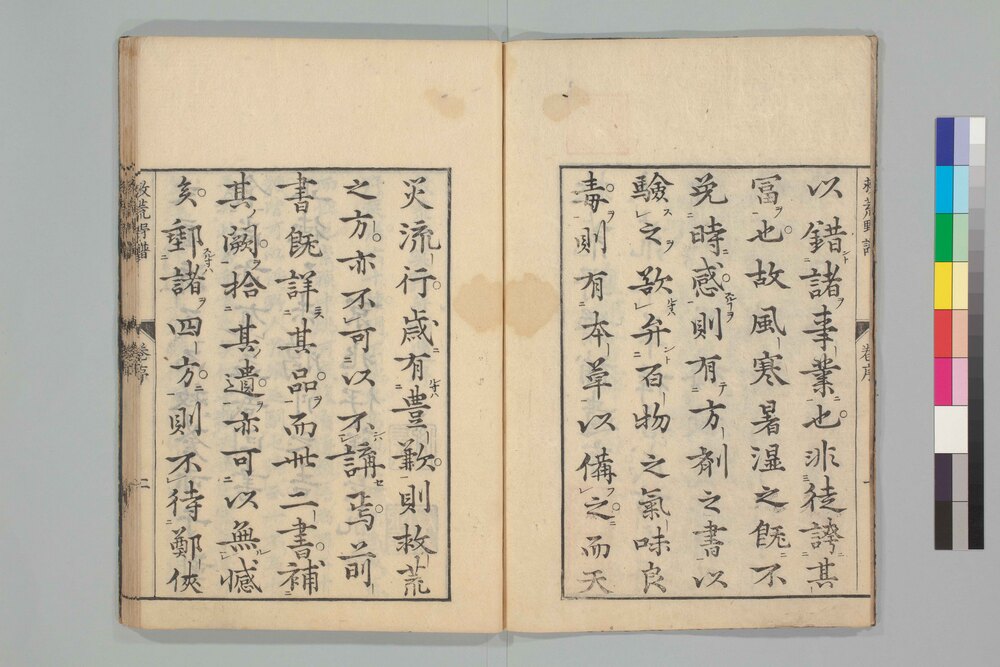 以錯諸事業也非徒誇其
冨也故風寒暑湿之既不
免時感則有方剤之書以
驗之欲弁百物之氣味良
毒則有本草以備之而天
災流行歳有豊歉則救荒
之方亦不可以不講焉前
書既詳其品而卅二書補
其闕拾其遺亦可以無憾
矣郵諸四方則不待鄭俠
救荒野譜
巻序
二